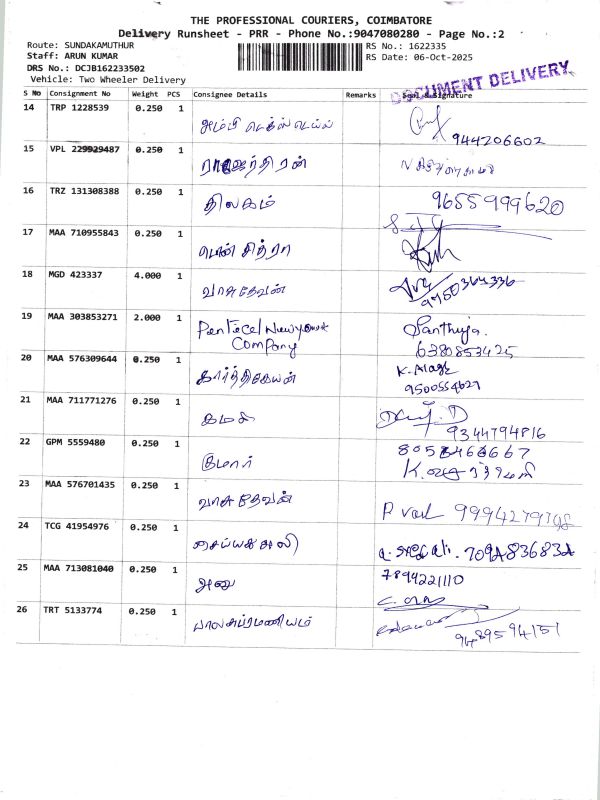 THE PROFESSIONAL COURIERS, COIMBATORE
Delivery Runsheet - PRR - Phone No.:9047080280 - Page No.:2
Route: SUNDAKAMUTHUR
RS No.: 1622335
Staff: ARUN KUMAR
RS Date: 06-Oct-2025
DRS No.: DCJB162233502
Vehicle: Two Wheeler Delivery
DOCUMENT DELIVERY
S No Consignment No Weight PCS Consignee Details Remarks Seal & Signature
14 TRP 1228539 0.250 1
944206602
15 VPL 229929487 0.250 1 ராஜேந்திரன்
16 TRZ 131308388 0.250 1 திலகம் 9655999620
17 MAA 710955843 0.250 1 பொன் சித்ரா
18 MGD 423337 4.000 1 வாசுதேவன்
9750364336
19 MAA 303853271 2.000 1 Pentecel Newyork Company Santhiya.
6380853425
20 MAA 576309644 0.250 1 கார்த்திகேயன் K. Alage
9500554627
21 MAA 711771276 0.250 1 கமலி
9344794816
22 GPM 5559480 0.250 1 குமார் 8058466667
23 MAA 576701435 0.250 1 வாசுதேவன் P. Vasu
24 TCG 41954976 0.250 1 செய்யது அலி
25 MAA 713081040 0.250 1 அனு 7894221110
26 TRT 5133774 0.250 1 பாலசுப்ரமணியம்
9489594151